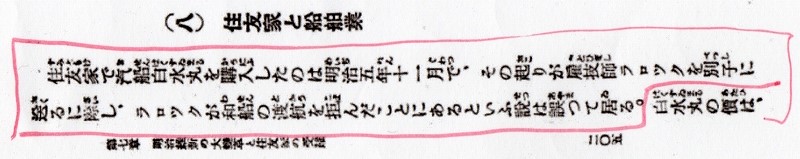 (八) 住友家と船舶業
住友家で汽船白水丸を購入したのは明治五年十一月で、その起りが雇技師ラロックを別子に
送るに際し、ラロックが和船の渡航を拒んだことにあるといふ説は誤つて居る。白水丸の価は、
第七章 明治維新の大変革と住友家の受難
二〇五